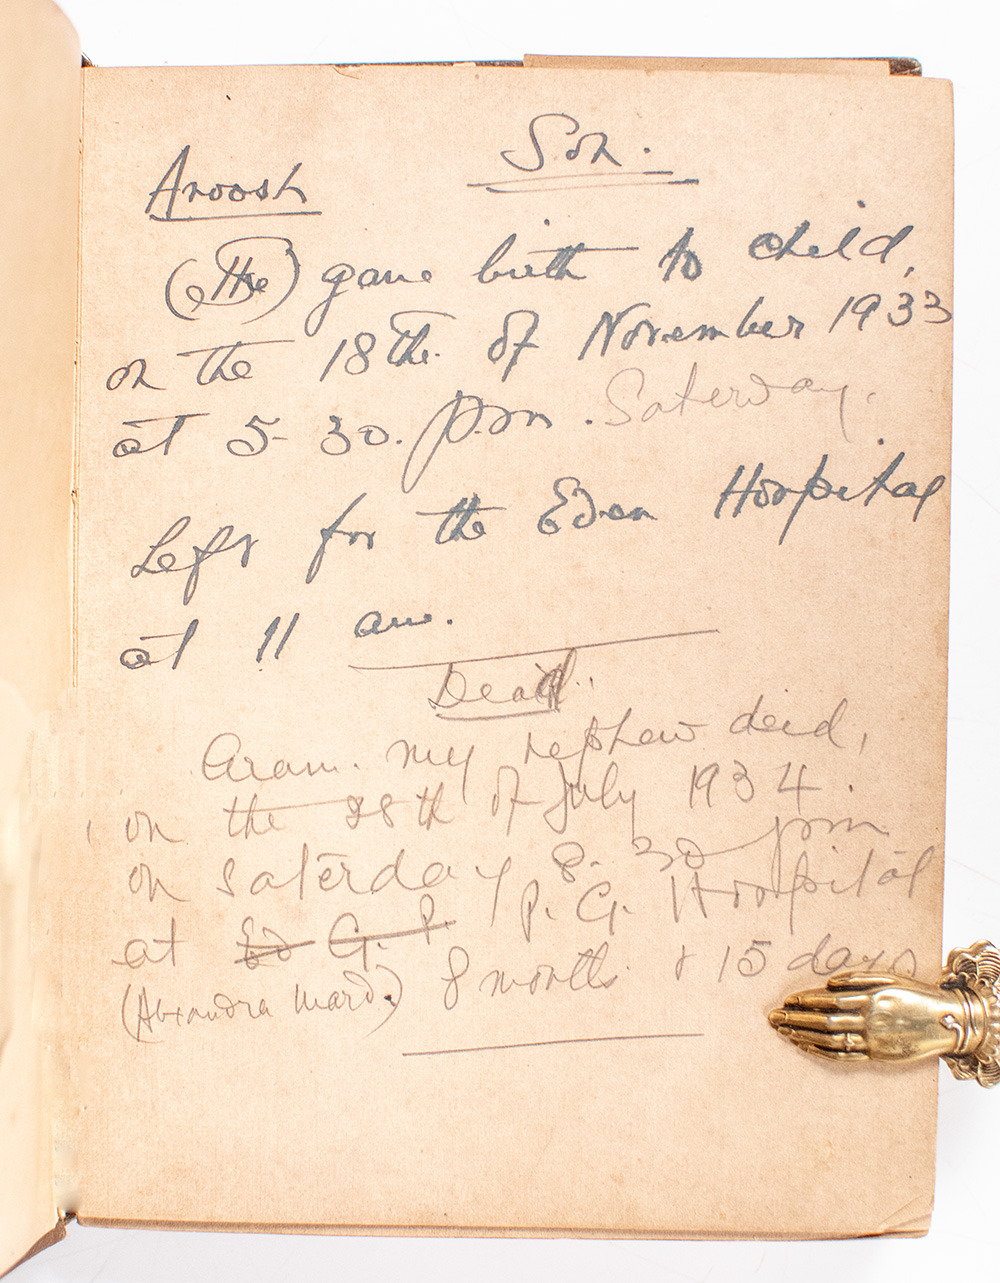 Son.
Aroosh
(The) gave birth to child,
on the 18th. of November 1933
at 5-30. p.m. Saterday.
Left for the Eden Hospital
at 11 am.
Death.
Aram. my nephew deid,
on the 28th of July 1934.
on Saterday 8.30 pm
at Ed G. P. P. G. Hospital
(Alexandra Ward.) 8 months & 15 days